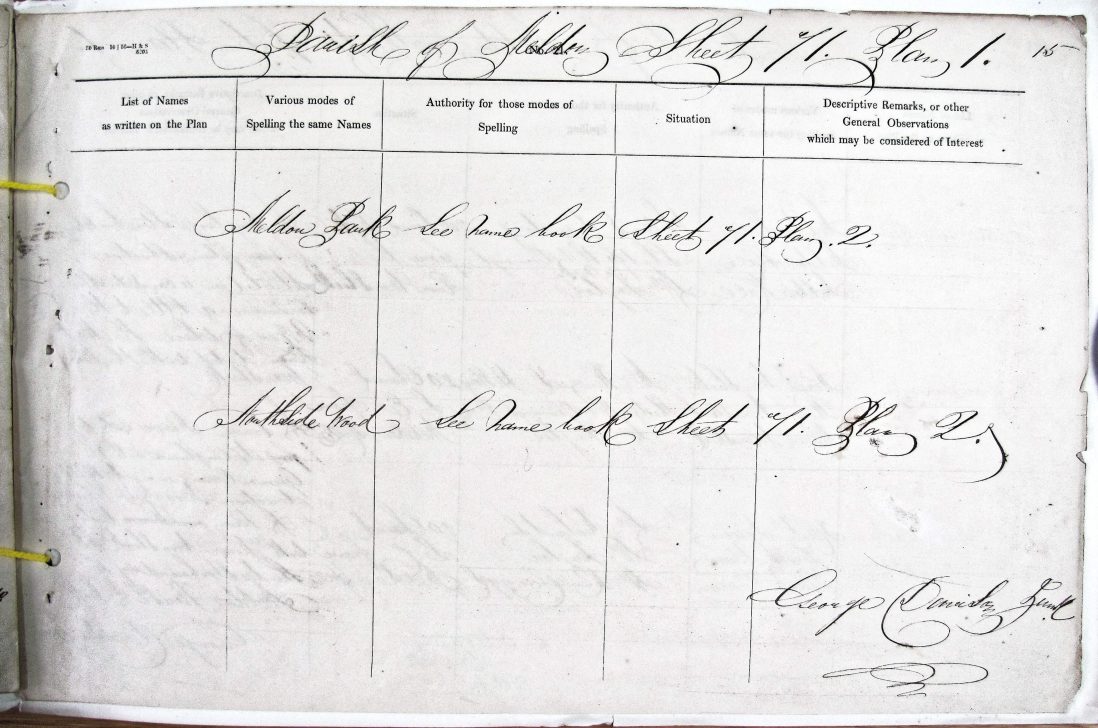 Parish of Meldon Sheet 71. Plan 1.
15
List of Names
as written on the Plan
Various modes of
Spelling the same Names
Authority for those modes of
Spelling
Situation
Descriptive Remarks, or other
General Observations
which may be considered of Interest
Meldon Park See Name book Sheet 71. Plan. 2.
Northside Wood See Name book Sheet 71. Plan 2.
George